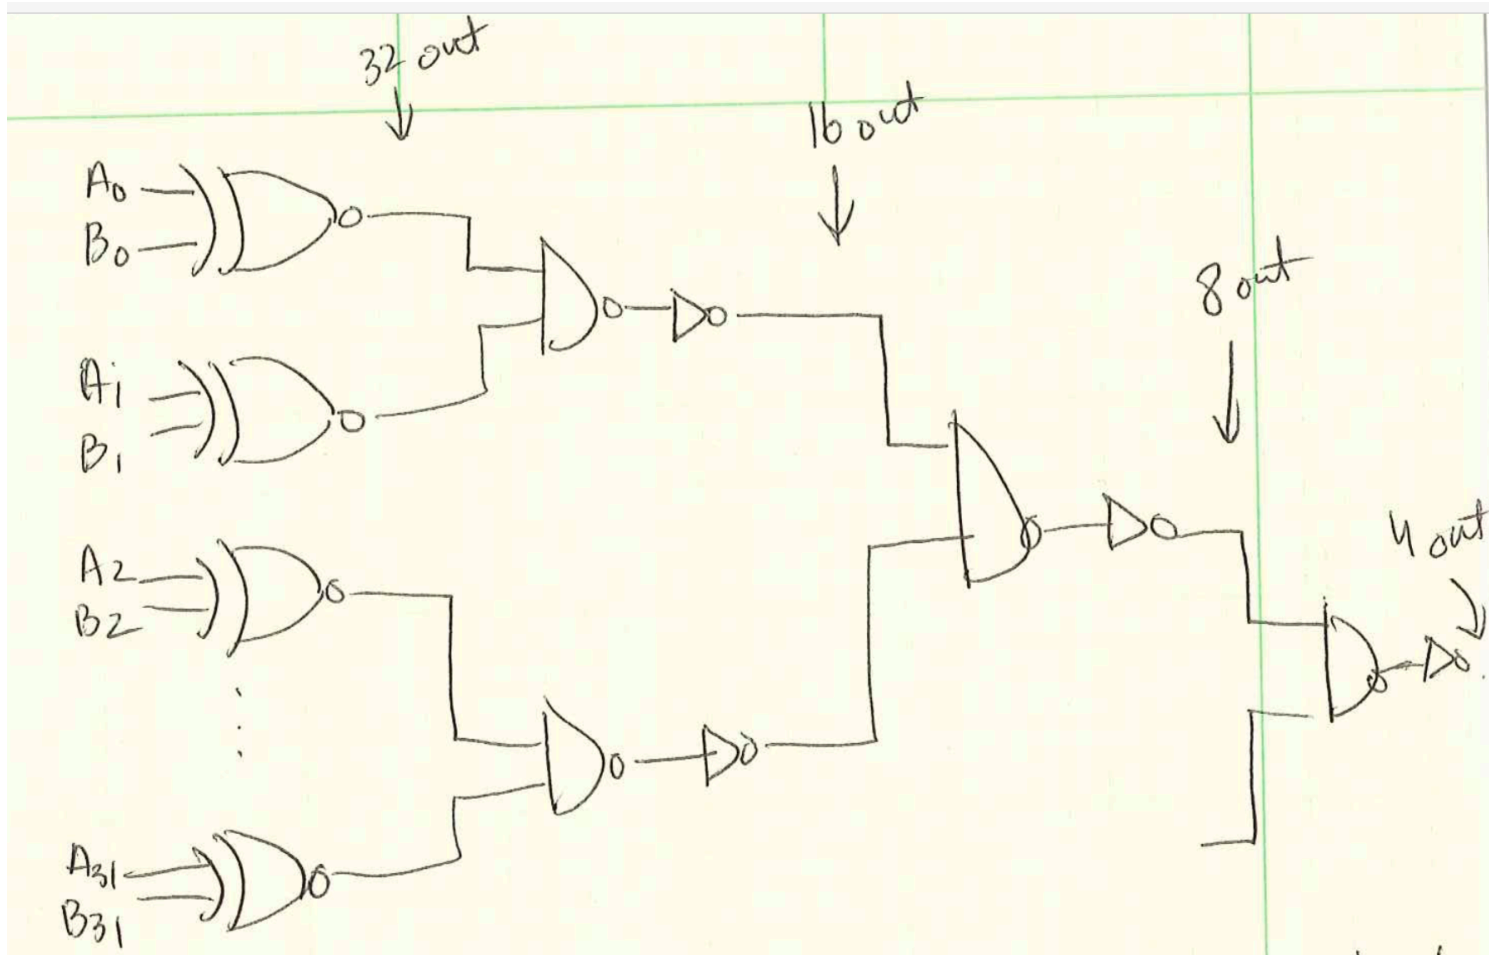 32 out
16 out
8 out
4 out
A0
B0
A1
B1
A2
B2
A31
B31